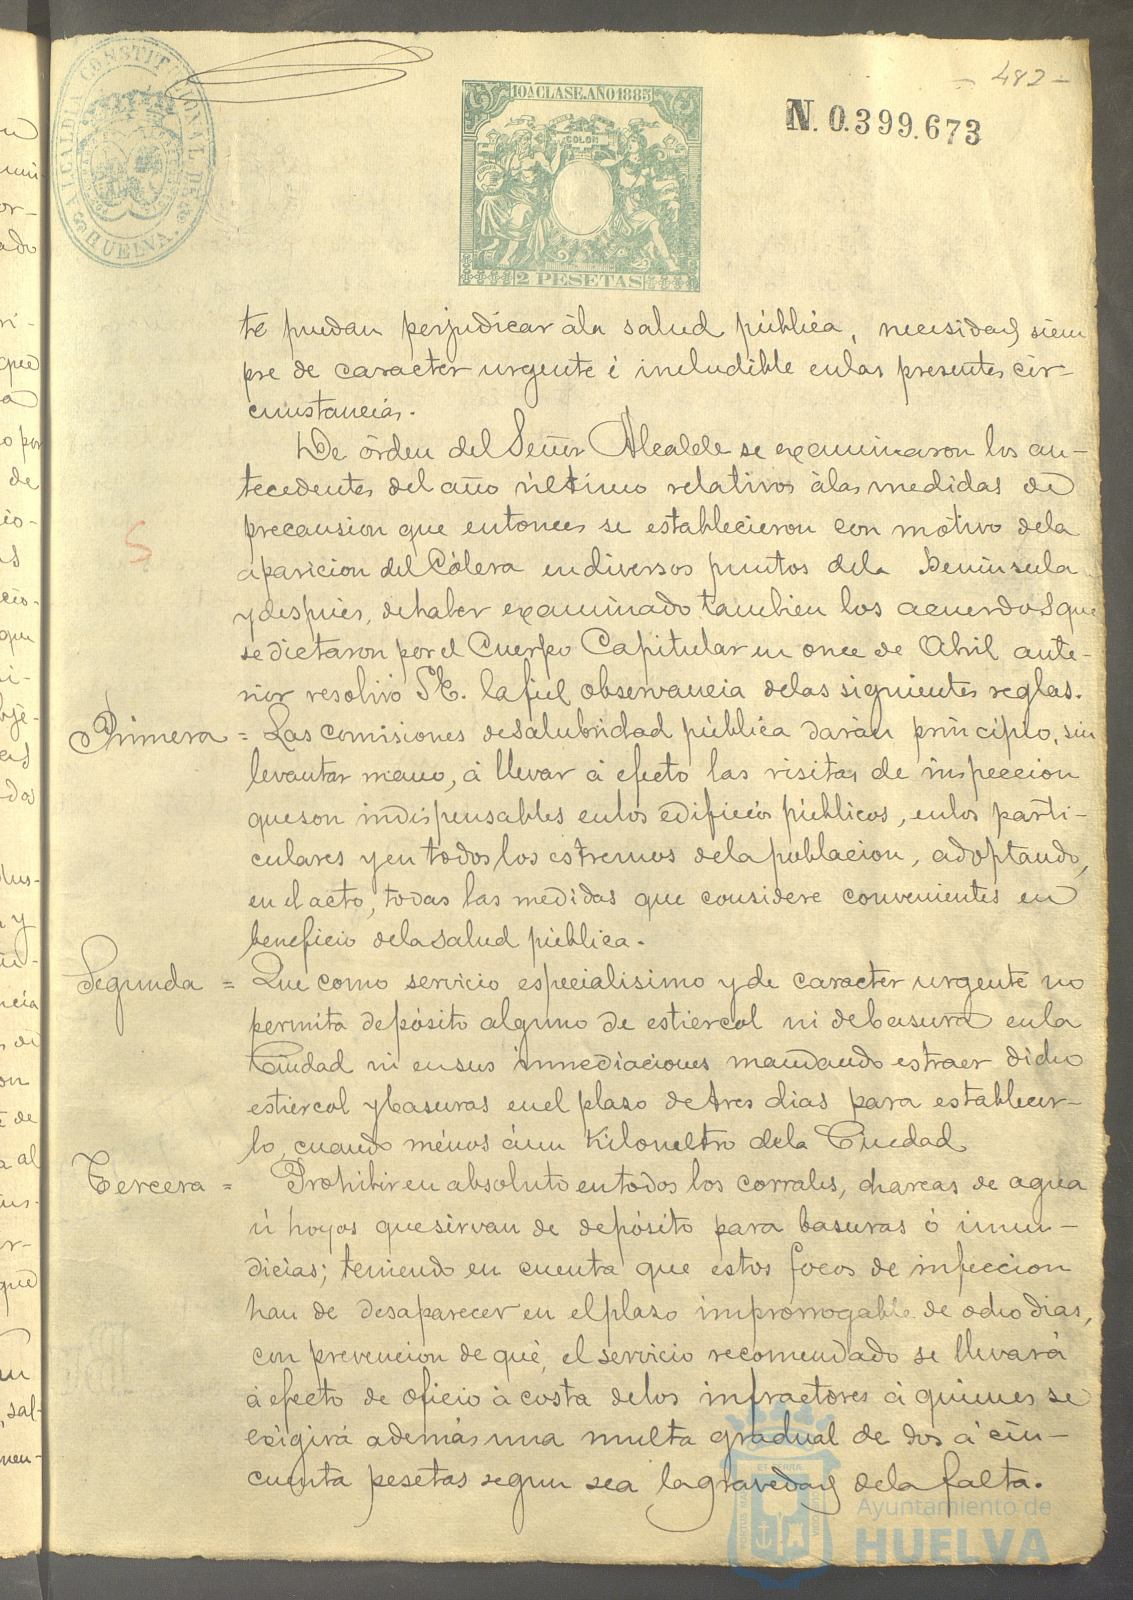 - 482 -
ALCALDIA CONSTITUCIONAL DE
HUELVA.
10A CLASE. AÑO 1885
COLON
2 PESETAS
N. 0.399.673
te puedan perjudicar ála salud pública, necesidad siem
pre de caracter urgente é ineludible enlas presentes cir-
cunstancias.
De órden del Señor Alcalde se examinaron los an-
tecedentes del año último relativos álas medidas de
precausion que entonces se establecieron con motivo dela
aparicion del Cólera endiversos puntos dela Peninsula
y despues, dehaber examinado tambien los acuerdos que
se dictaron por el Cuerpo Capitular en once de Abril ante-
rior resolvió S.E. la fiel observancia delas siguientes reglas.
Primera = Las comisiones desalubridad pública darán principio, sin
levantar mano, á llevar á efecto las visitas de inspeccion
queson indispensables enlos edificios públicos, enlos parti-
culares y en todos los estremos dela poblacion, adoptando,
en el acto, todas las medidas que considere convenientes en
beneficio dela salud pública.
Segunda = Que como servicio especialisimo y de caracter urgente no
permita depósito alguno de estiercol ni debasura enla
Ciudad ni ensus inmediaciones mandando estraer dicho
estiercol y basuras enel plazo de tres dias para establecer-
lo, cuando ménos á un Kilometro dela Ciudad
Tercera = Prohibir en absoluto entodos los corrales, charcas de agua
ú hoyos que sirvan de depósito para basuras ó inmun-
dicias; teniendo en cuenta que estos focos de infeccion
han de desaparecer en el plazo improrrogable de ocho dias,
con prevencion de que, el servicio recomendado se llevará
á efecto de oficio á costa delos infractores á quienes se
exigirá además una multa gradual de dos á cin-
cuenta pesetas segun sea la gravedad dela falta.
Ayuntamiento de
HUELVA